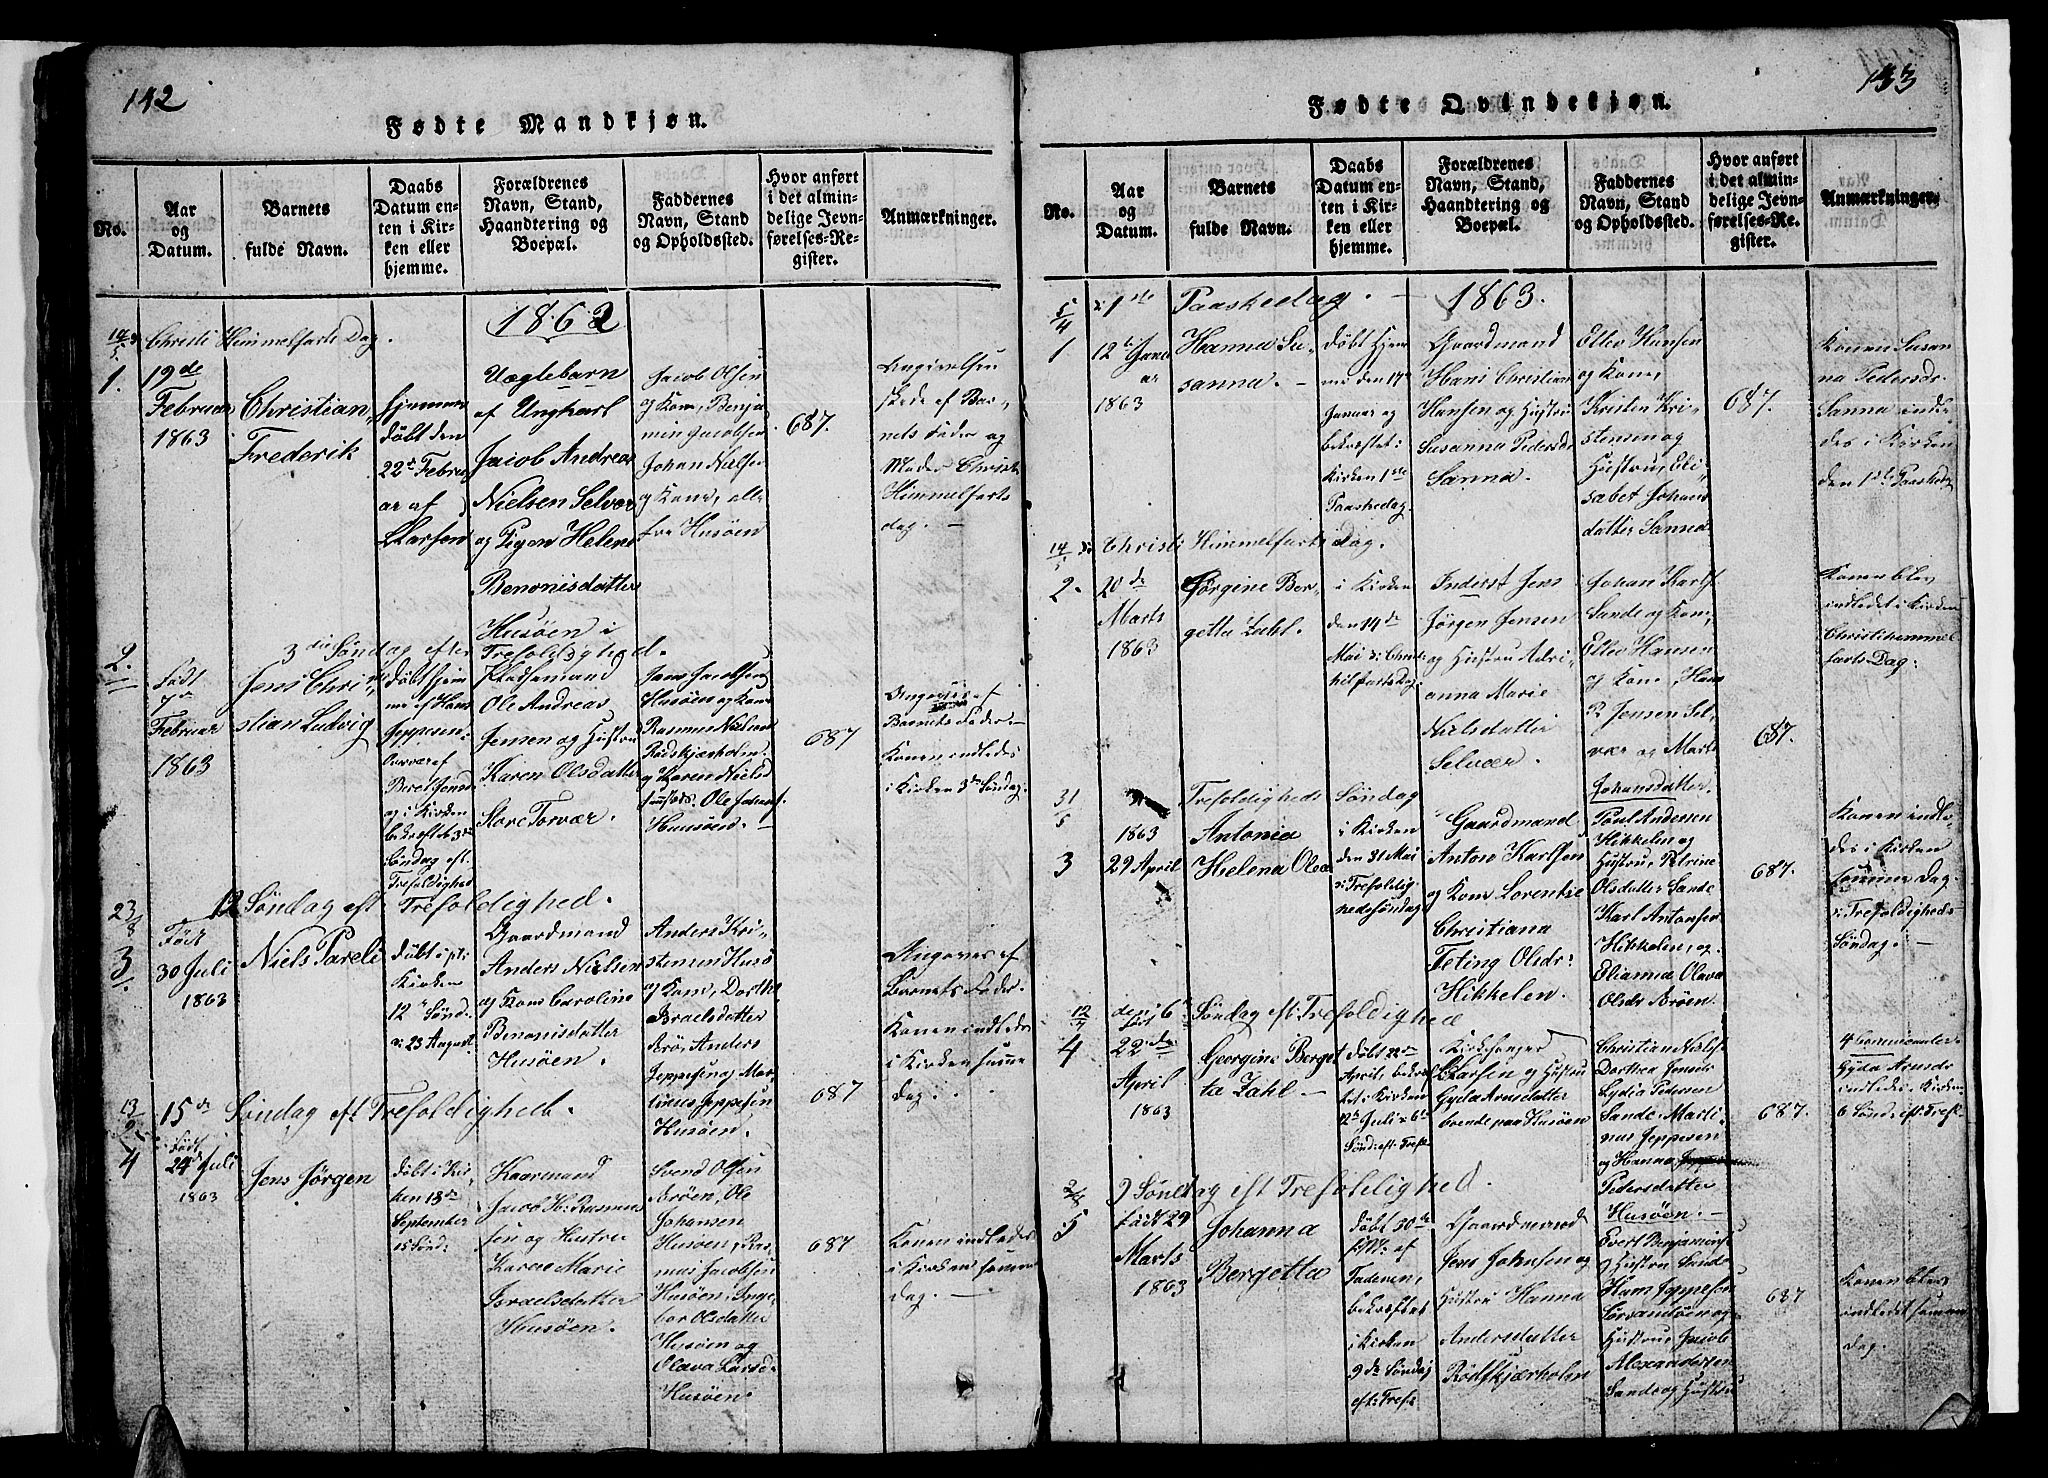 142
Fødte Mandkjøn.
No.
Aar og Datum.
Barnets fulde Navn.
Daabs Datum enten i Kirken eller hjemme.
Forældrenes Navn, Stand, Haandtering og Boepæl.
Faddernes Navn, Stand og Opholdssted.
Hvor anført i det almindelige Jevnførelses-Register.
Anmærkninger.
1863
14/5 Christi Himmelfarts Dag.
1.
19de
Februar
1863
Christian
Frederik
Hjemme
døbt den
22de Febru
ar af
Larsen
Uægte barn
af Ungkarl
Jacob Andreas
Nielsen Selvær
og Pigen Helene
Benonisdatter
Husøen i
Jacob Olsen
og Kone, Benja
min Jacobsen
Johan Nielsen
og Kone, alle
fra Husøen
687.
Angivelsen
skede af Bar
nets Fader og
Moder Christi
Himmelfarts
dag. —
3die Søndag efter Trefoldighed.
2.
Født
7de
Februar
1863
Jens Chri
stian Ludvig
Døbt hjem
me af Hans
Jeppesen
Overvær af
Beret Jensd
og i Kirken
bekræftet 3die
Søndag eft.
Trefoldighed
Pladsmand
Ole Andreas
Jensen og Hustru
Karen Olsdatter
Store Torvær.
Jens Jacobsen
Husøen og Kone
Rasmus Nielsen
Rødskjærholm.
og Karen Nielsd
Ole Johans.
Huusøen. —
687
Angaves af
Barnets Fader. —
Konen indledes
i Kirken 3die Søndag.
23/8 12 Søndag eft Trefoldighed.
3.
Født
30 Juli
1863
Niels Pareli
Døbt i
Kirken
12te Sønd.
23 August.
Gaardmand
Anders Nielsen
og Kone Caroline
Benonisdatter
Husøen.
Anders Kri
stensen Husø
og Kone, Dorthe
Israelsdatter
Anders
Jeppesen og Mar
tinus Jeppesen
Husøen.
687
Angaves af
Barnets Fader.
Konen indledes
i Kirken samme
dag.
13/9 15de Søndag eft Trefoldighed.
4
Født
24de Juli
1863
Jens Jørgen
Døbt i Kir
ken 13de
September
15 Sønd:
Kaarmand
Jacob H: Rasmus
sen og Hustru
Karen Marie
Israelsdatter
Husøen.
Svend Olsen
Ole
Johansen
Husøen, Ras
mus Jacobsen
Husøen, Inge
bor Olsdatter
Husøen og
Olava Larsd.
Husøen.
687
Konen indledes
i Kirken samme
dag. —
133
Fødte Qvindekjøn.
No.
Aar og Datum.
Barnets fulde Navn.
Daabs Datum enten i Kirken eller hjemme.
Forældrenes Navn, Stand, Haandtering og Boepæl.
Faddernes Navn, Stand og Opholdssted.
Hvor anført i det almindelige Jevnførelses-Register.
Anmærkninger.
5/4 1ste Paaskedag. — 1863.
1
12te Janu
ar
1863
Hanna Su
sanna. —
Døbt Hjem
me den 17de
Januar og
bekræftet i
Kirken 1ste
Paaskedag.
Gaardmand
Hans Christian
Hansen og Hustru
Susanna Pedersdr
Sanna.
Ellev Hansen
og Kone,
Kristen Kri
stensen og
Hustru, Eli
sabet Johans
datter Sanna
687.
Konen Susan
na Pedersdr.
Sanna inde
des i Kirken
den 1ste Paaskedag
14/5 Christi Himmelfarts Dag.
2.
20de
Marts
1863
Jørgine Ber
getta Zahl.
i Kirken
den 14de
Mai
Inderst Jens
Jørgen Jensen
og Hustru Adri
anna Marie
Nielsdatter
Selvær.
Johan Karls
Sande og Kone,
Ellev Hansen
og Kone, Hans
P. Jensen Sel
vær og Marte
Johansdatter.
687.
Konen blev
indledet i Kirken
Christi himmel
farts Dag.
31/5 Trefoldigheds Søndag
3
1863
29 April
Antonia
Helena Olva
i Kirken
den 31 Mai
Trefoldig
hedssøndag
Gaardmand
Anton Karlsen
og Kone Lorentse
Christiana
Teting Olsdr:
Hikkelen.
Poul Andersen
Hikkelen og
Hustru, Petrine
Olsdatter Sande
Karl Antonsen
Hikkelen, og
Elianna Olava
Olsdr Brøen.
687.
Konen indle
des i Kirken
samme Dag.
Trefoldigheds
Søndag.
12/7 den 6te Søndag eft. Trefoldighed
4
født
22de
April
1863
Georgine Berget
ta Zahl. —
Døbt 22de
April, bekræf
tet i Kirken
12te Juli 6te
Sønd: eft. Tref.
Kirkesanger
Larsen og Hustru
Gyda Arnsdatter
boende paa Husøen
Christian Niels.
Dorthea Jensdr
Lydia Pedersen
Sande Marti
nus Jeppesen
og Hanna
Pedersdatter
Husøen. —
687.
Gyda Arnsdr
indledes i Kirken
6 Sønd: eft. Tref.
9 Søndag eft Trefoldighed.
5
Født 29
Marts
1863
Johanna
Bergetta
Døbt 30te
af
Faderen,
bekræftet
i Kirken
9de Søndag
eft: Tref.
Gaardmand
Jens Johnsen og
Hustru Hanna
Andersdatter
Rødskjærholm
Evert Benjamins
og Hustru Sande
Hans Jeppesen
Sørsandøen og
Hustru, Jacob
Alexandersen
Sande og Hustru
687
Konen blev
indledet samme
dag.